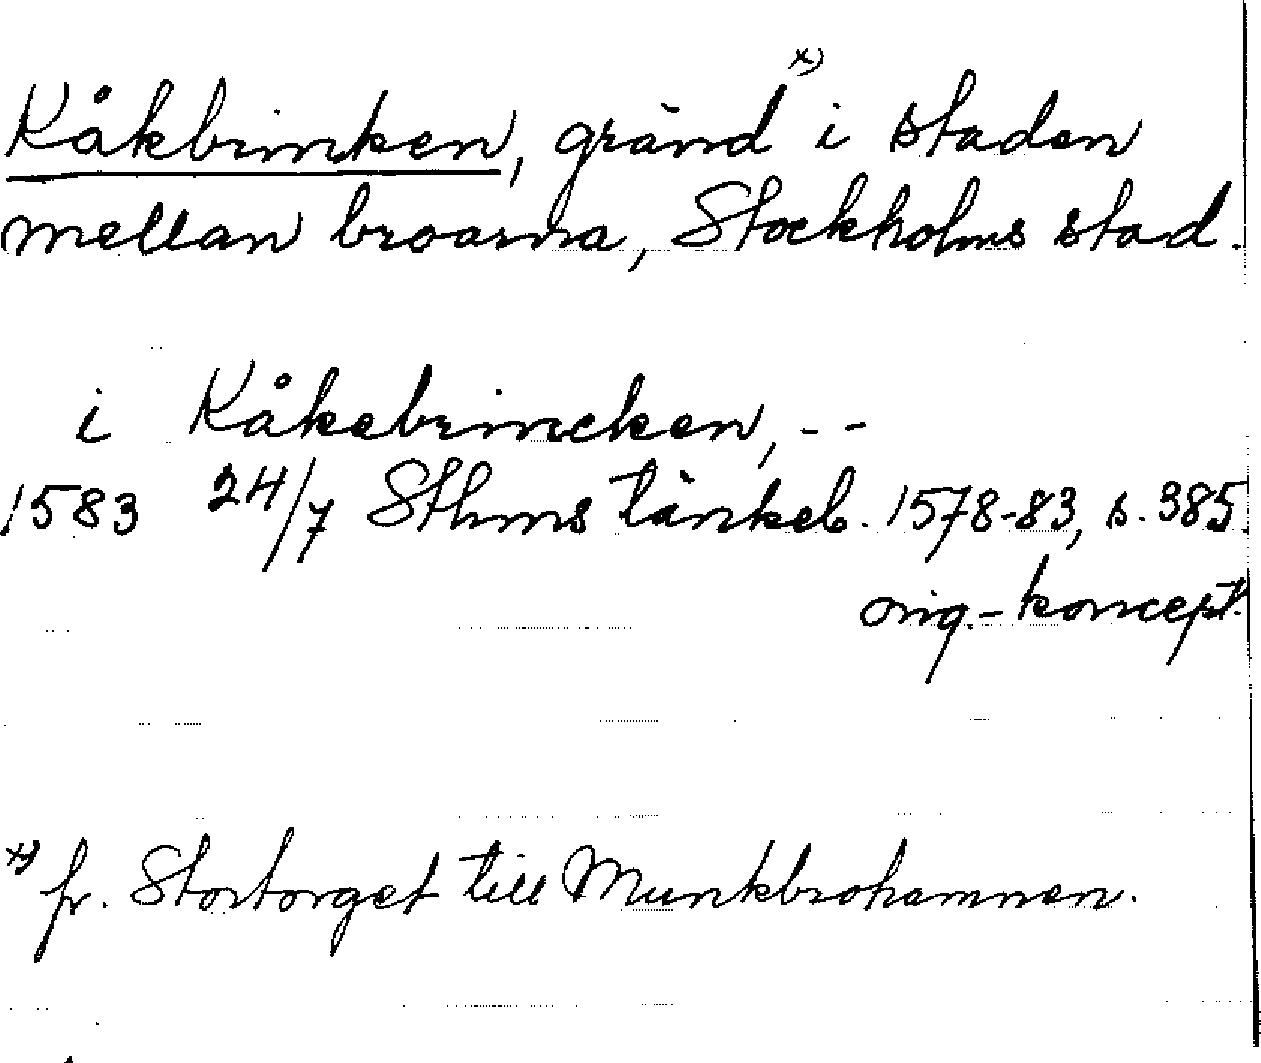 Kåkbrinken, gränd x) i staden
mellan broarna, Stockholms stad.
i Kåkebrincken, - -
1583 24/7 Sthms tänkeb. 1578-83, s. 385.
orig.-koncept.
x) fr. Stortorget till Munkbrohamnen.